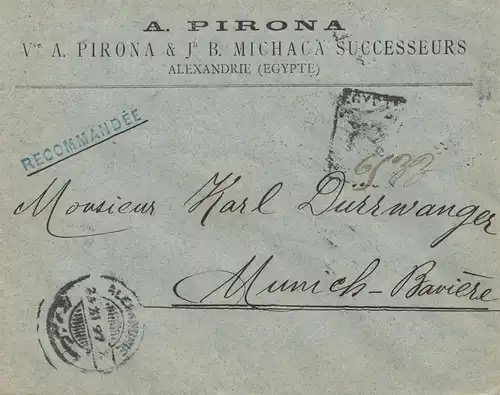 A. PIRONA
Vve A. PIRONA & Jh B. MICHACA SUCCESSEURS
ALEXANDRIE (EGYPTE)
RECOMMANDÉE
EGYPTE
Monsieur Karl Dürrwanger
Munich-Bavière
ALEXANDRIE